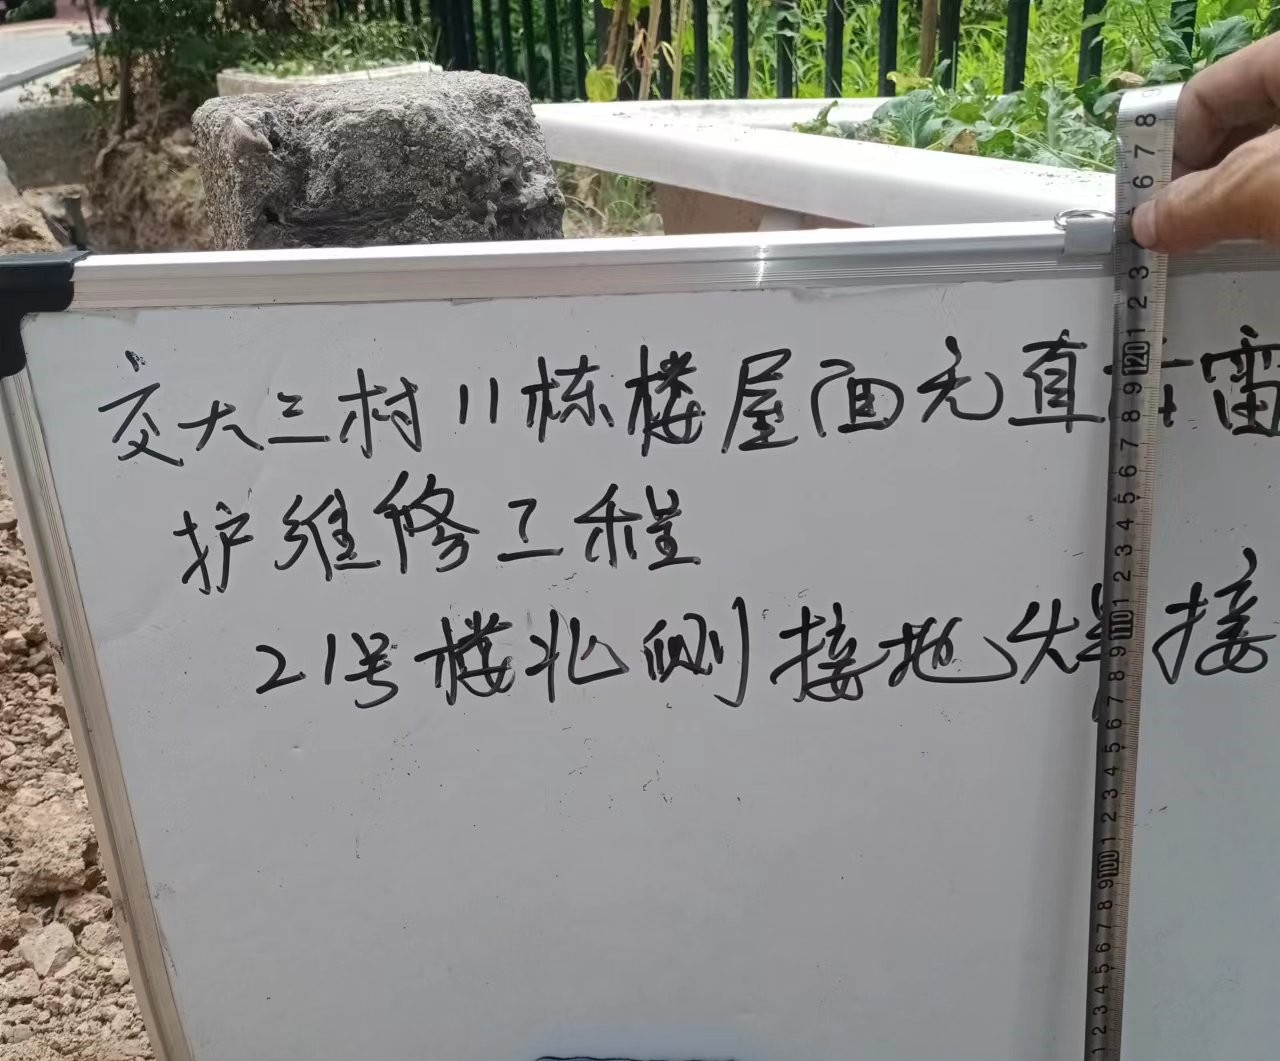 交大三村11栋楼屋面无直雷
护维修工程
21号楼北侧接地焊接
9 8 7 6 3 2 1 120 9 8 7 6 5 4 3 2 1 110 9 8 7 6 5 4 3 2 1 100 9 8 7 6 5 4 3 2 1